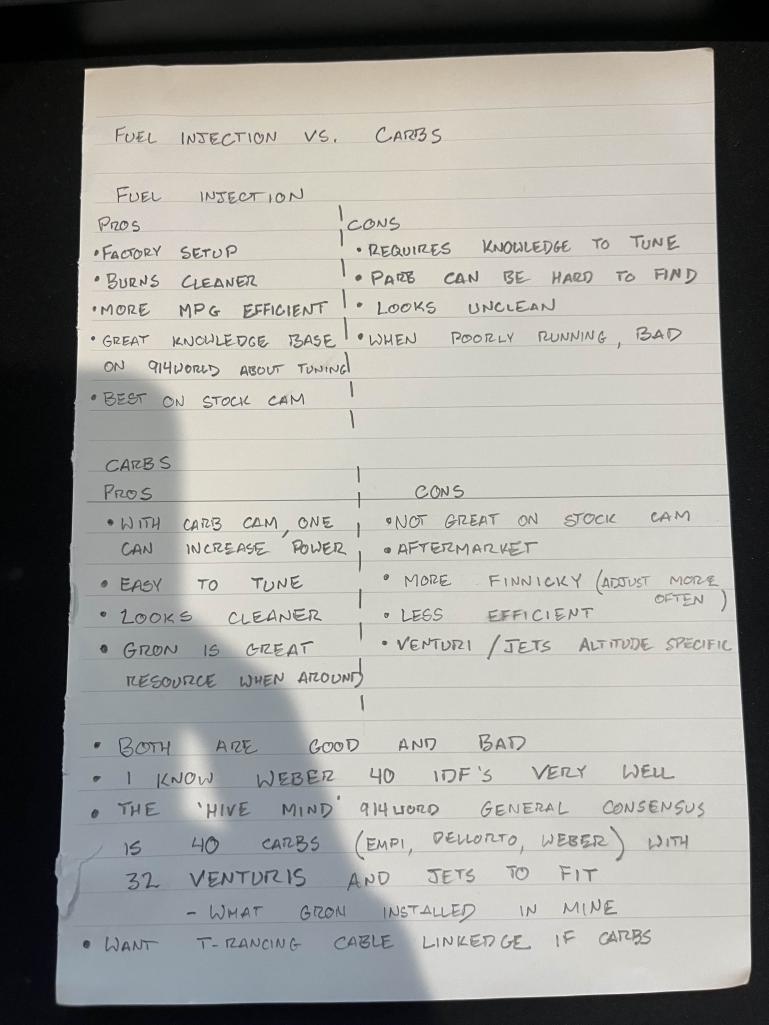 FUEL INJECTION VS. CARBS
FUEL INJECTION
PROS
• FACTORY SETUP
• BURNS CLEANER
• MORE MPG EFFICIENT
• GREAT KNOWLEDGE BASE
ON 914WORLD ABOUT TUNING
• BEST ON STOCK CAM
CONS
• REQUIRES KNOWLEDGE TO TUNE
• PARB CAN BE HARD TO FIND
• LOOKS UNCLEAN
• WHEN POORLY RUNNING, BAD
CARBS
PROS
• WITH CARB CAM, ONE
CAN INCREASE POWER
• EASY TO TUNE
• LOOKS CLEANER
• GRON IS GREAT
RESOURCE WHEN AROUND
CONS
• NOT GREAT ON STOCK CAM
• AFTERMARKET
• MORE FINNICKY (ADJUST MORE
OFTEN)
• LESS EFFICIENT
• VENTURI / JETS ALTITUDE SPECIFIC
• BOTH ARE GOOD AND BAD
• I KNOW WEBER 40 IDF'S VERY WELL
• THE 'HIVE MIND' 914WORD GENERAL CONSENSUS
IS 40 CARBS (EMPI, DELLORTO, WEBER) WITH
32 VENTURIS AND JETS TO FIT
- WHAT GRON INSTALLED IN MINE
• WANT T-RANCING CABLE LINKEDGE IF CARBS